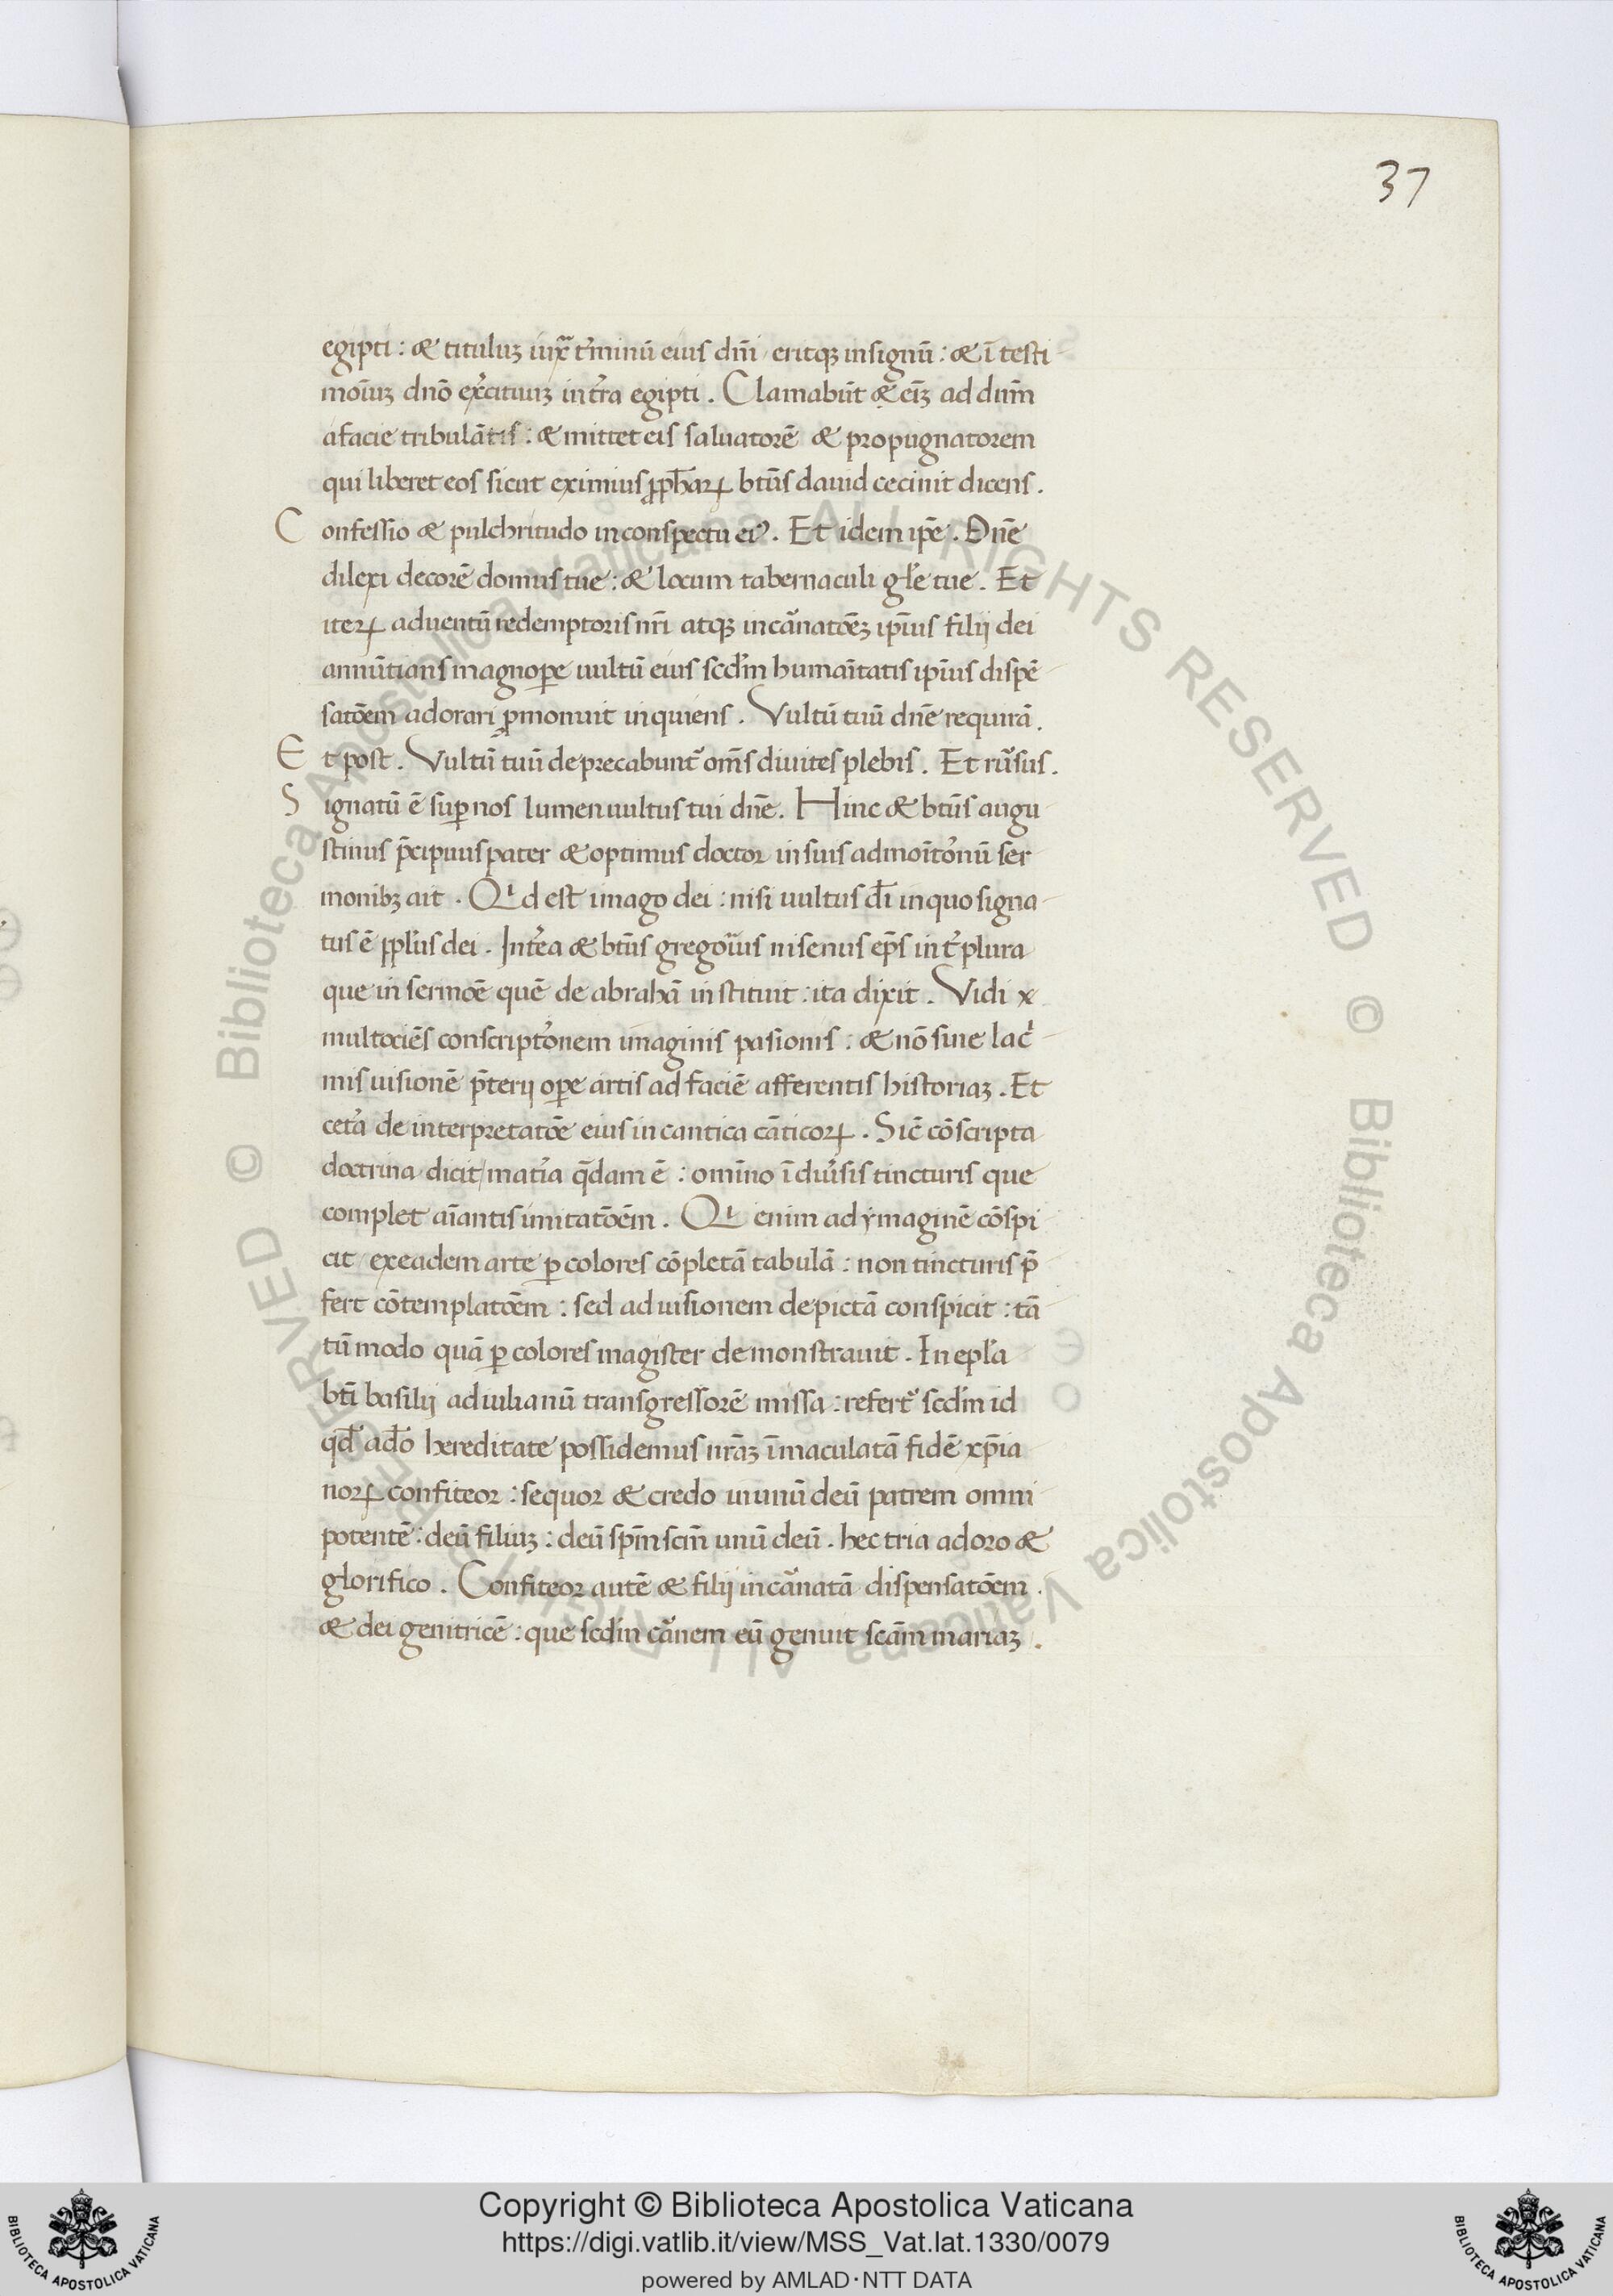 37
egipti : & tituluꝫ iuxᷓ t̓minū eius dn̄i / eritqꝫ in signū : & ī testi
mōiuꝫ dnō ex̓cituuꝫ in t̓ra egipti . Clamabūt & eīꝫ ad dūm
a facie tribulātis : & mittet eis saluatorē & propugnatorem
qui liberet eos sicut eximius ꝓph̄aꝝ bt̄us dauid cecinit dicens .
Confessio & pulchritudo in conspectu eiꝰ . Et idem ip̄e . Dn̄e
dilexi decorē domus tue : & locum tabernaculi gl̄e tue . Et
iteꝝ aduentū redemptoris nr̄i atqꝫ incãnatōēꝫ ip̄ius filij dei
annūtians magnoꝑe uultū eius scd̄m humaītatis ip̄ius dispē
satōem adorari p̱monuit inquiens . Vultū tuū dn̄e requirā .
Et post . Vultū tuū deprecabunt᷑ om̄s diuites plebis . Et rũsus .
Signatū ē suꝑ nos lumen uultus tui dn̄e . Hinc & bt̄us augu
stinus p̄cipuus pater & optimus doctor in suis admoīto̓nū ser
monibꝫ ait . Qͥd est imago dei : nisi uultus dī in quo signa
tus ē ppl̄us dei . Int̓ea & bt̄us gregoriͥus nisenus ep̄s int̓ plura
que in sermōe quē de abrahā instituit : ita dixit . Vidi x
multociēs conscripto̓nem imaginis pasionis : & nō sine lac̓
mis uisionē p̄terij oꝑe artis ad faciē afferentis historiaꝫ . Et
cet̓a de interpretatōe eius in cantica cāticoꝝ . Sic̄ cōscripta
doctrina dicit / mat̓ia q̄dam ē : omīno ī diũsis tincturis que
complet aīantis imitatōēm . Qͥ enim ad ymaginē cōspi
cit / ex eadem arte ꝑ colores cōpletā tabulā : non tincturis p̄
fert cōtemplatōēm : sed ad uisionem depictā conspicit : tā
tū modo quā ꝑ colores magister demonstrauit . In epl̄a
bt̄i basilij ad iulianū transgressorē missa : refert᷑ scd̄m id
qd̄ a dō hereditate possidemus nrāꝫ īmaculatā fidē xp̄ia
noꝝ confiteor : sequor & credo in unū deū patrem omni
potentē : deū filiuꝫ : deū sp̄m scm̄ unū deū . hec tria adoro &
glorifico . Confiteor autē & filij incãnatā dispensatōem .
& dei genitricē : que scd̄m cãnem eū genuit scām mariaꝫ .
Copyright © Biblioteca Apostolica Vaticana
https://digi.vatlib.it/view/MSS_Vat.lat.1330/0079
powered by AMLAD·NTT DATA
BIBLIOTECA APOSTOLICA VATICANA
BIBLIOTECA APOSTOLICA VATICANA
© Biblioteca Apostolica Vaticana ALL RIGHTS RESERVED
© Biblioteca Apostolica Vaticana ALL RIGHTS RESERVED